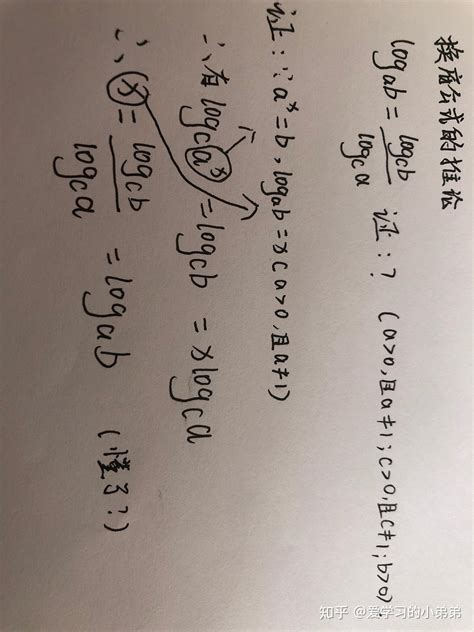 换底公式的推论
logab = logcb/logca 证:? (a>0,且a≠1;c>0,且c≠1;b>0)
证:∵aˣ=b,logab=x(a>0,且a≠1)
∴有logcaˣ=logcb=xlogca
∴(x)=logcb/logca=logab (懂了?)
知乎 @爱学习的小弟弟